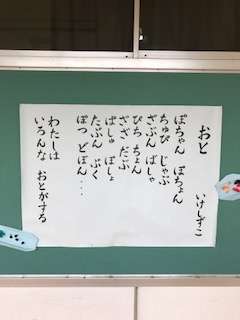 おと
いけしずこ
ぽちゃん ぽちょん
ちゅぴ じゃぶ
ざぶん ばしゃ
ぴち ちょん
ざざ だぶ
ぱしゅ ぽしょ
たぷん ぷく
ぽつ どぼん・・・
わたしは
いろんな おとがする